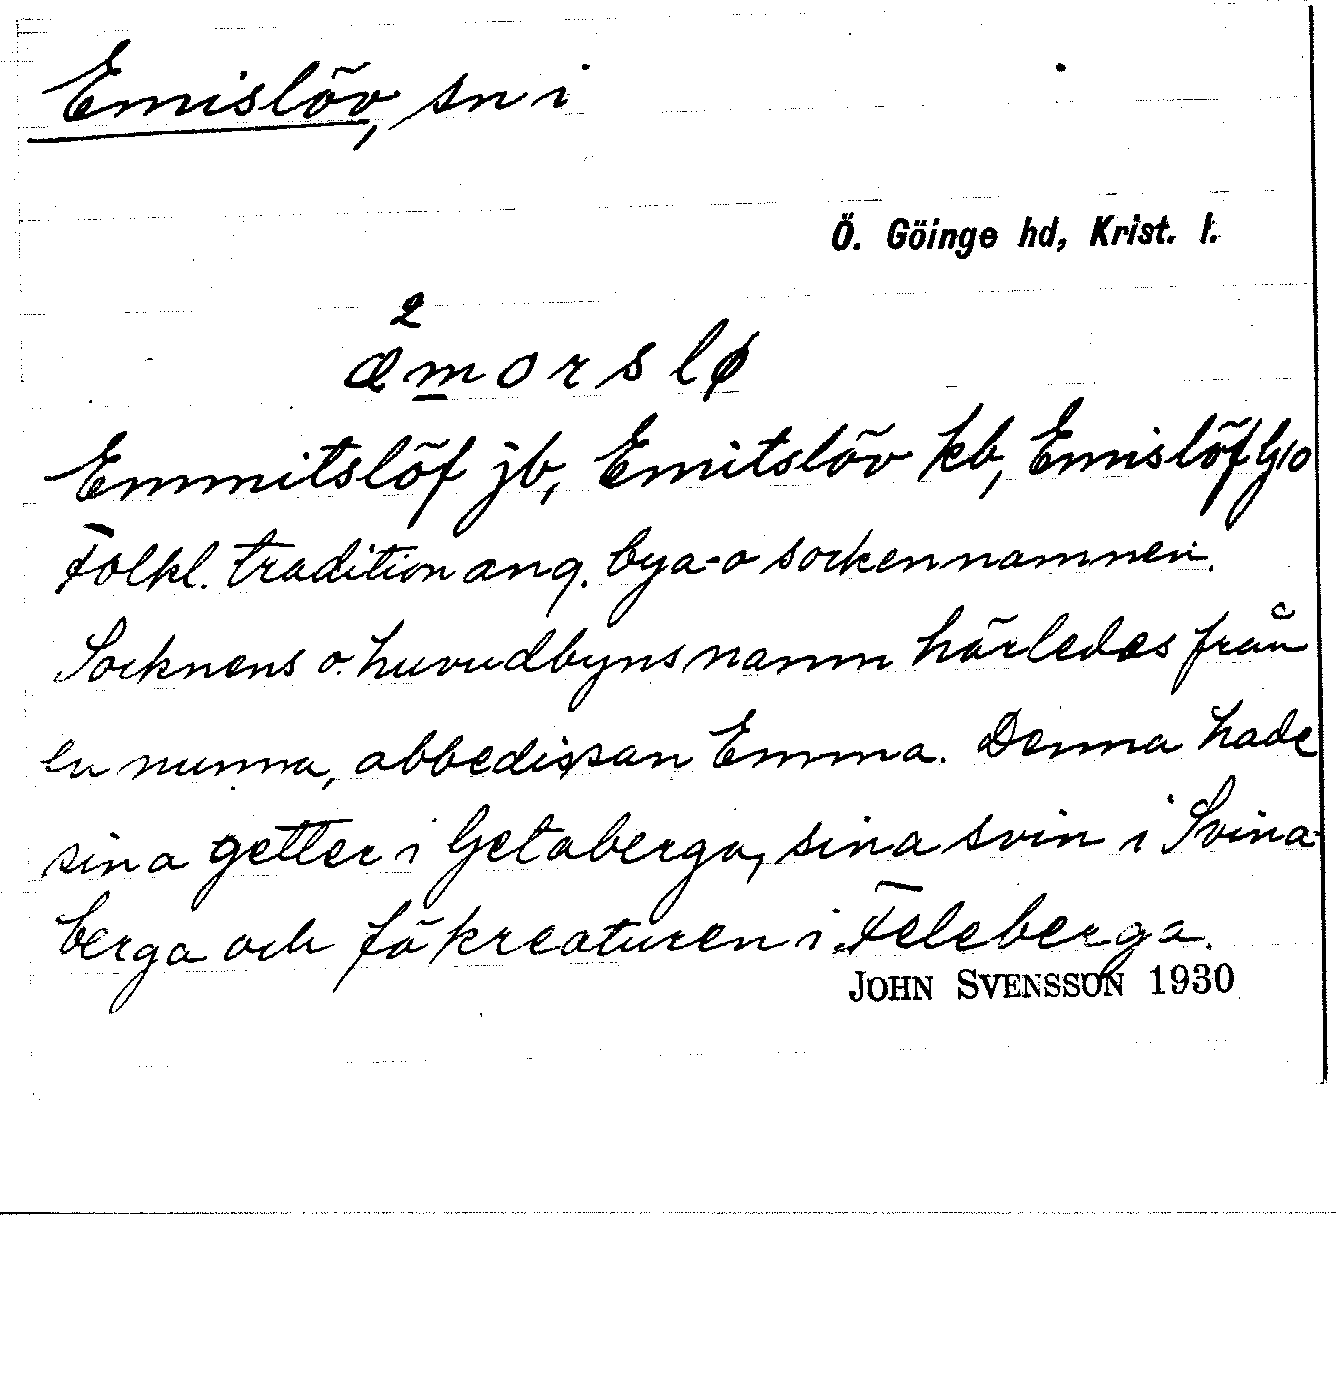 Emislöv, sn i
Ö. Göinge hd, Krist. l.
2
æmorslø
Emmitslöf jb, Emitslöv kb, Emislöf G10
Folkl. tradition ang. bya- o sockennamnen.
Socknens o. huvudbyns namn härledes från
en nunna, abbedissan Emma. Denna hade
sina getter i Getaberga, sina svin i Svina-
berga och fökreaturen i Feleberga.
JOHN SVENSSON 1930